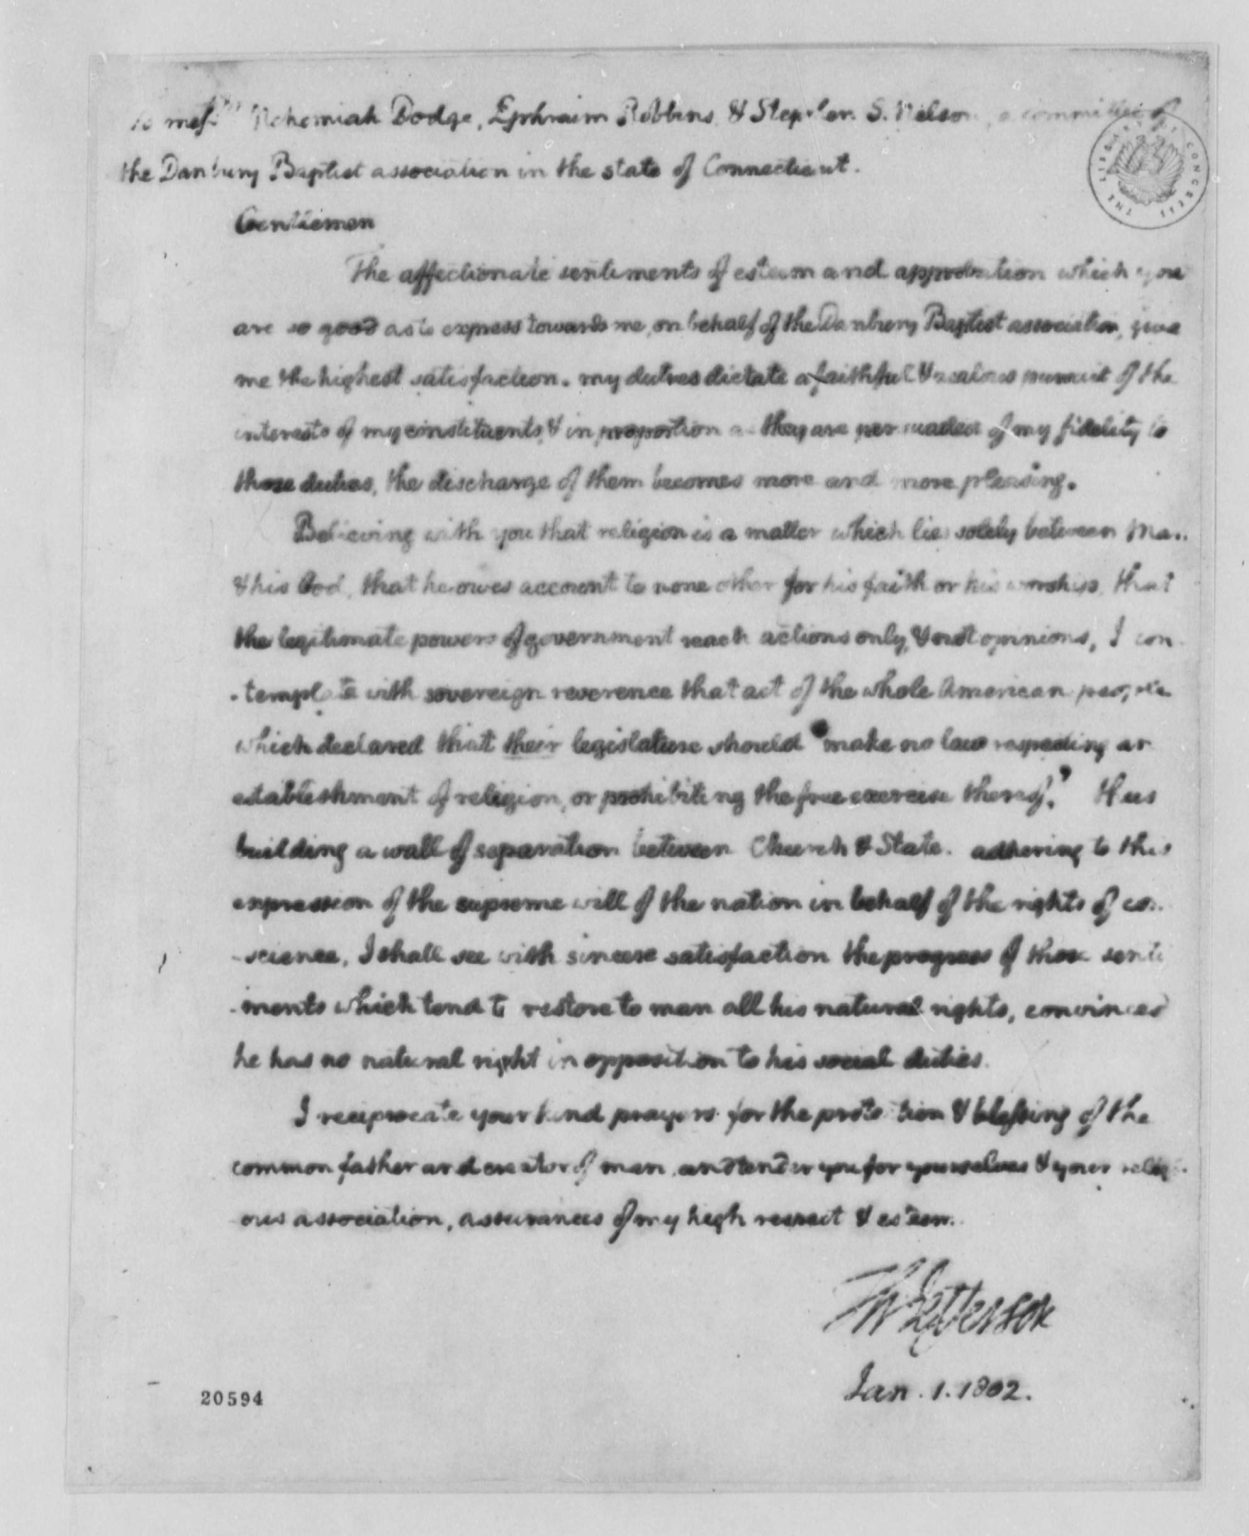 To messrs Nehemiah Dodge, Ephraim Robbins, & Stephen S. Nelson, a committee of
the Danbury Baptist association in the state of Connecticut.
THE LIBRARY OF CONGRESS
Gentlemen
The affectionate sentiments of esteem and approbation which you
are so good as to express towards me, on behalf of the Danbury Baptist association, give
me the highest satisfaction. my duties dictate a faithful & zealous pursuit of the
interests of my constituents, & in proportion as they are persuaded of my fidelity to
those duties, the discharge of them becomes more and more pleasing.
Believing with you that religion is a matter which lies solely between Man
& his God, that he owes account to none other for his faith or his worship, that
the legitimate powers of government reach actions only, & not opinions, I con-
-template with sovereign reverence that act of the whole American people
which declared that their legislature should "make no law respecting an
establishment of religion, or prohibiting the free exercise thereof." thus
building a wall of separation between Church & State. adhering to this
expression of the supreme will of the nation in behalf of the rights of con-
-science, I shall see with sincere satisfaction the progress of those senti
-ments which tend to restore to man all his natural rights, convinced
he has no natural right in opposition to his social duties.
I reciprocate your kind prayers for the protection & blessing of the
common father and creator of man, and tender you for yourselves & your religi-
ous association, assurances of my high respect & esteem.
Th Jefferson
Jan. 1. 1802.
20594